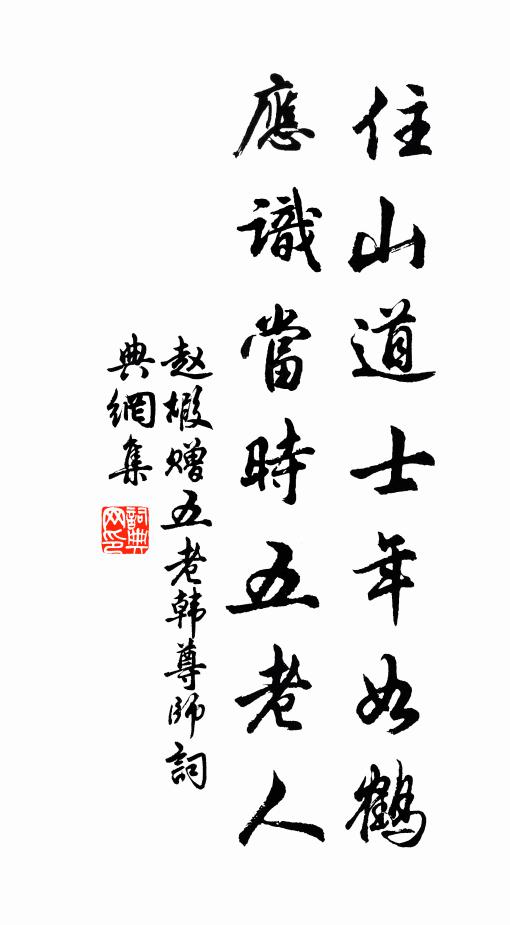 住山道士年如鶴
應識當時五老人
赵嘏赠五老韩尊師詞
典網集
詞典网印